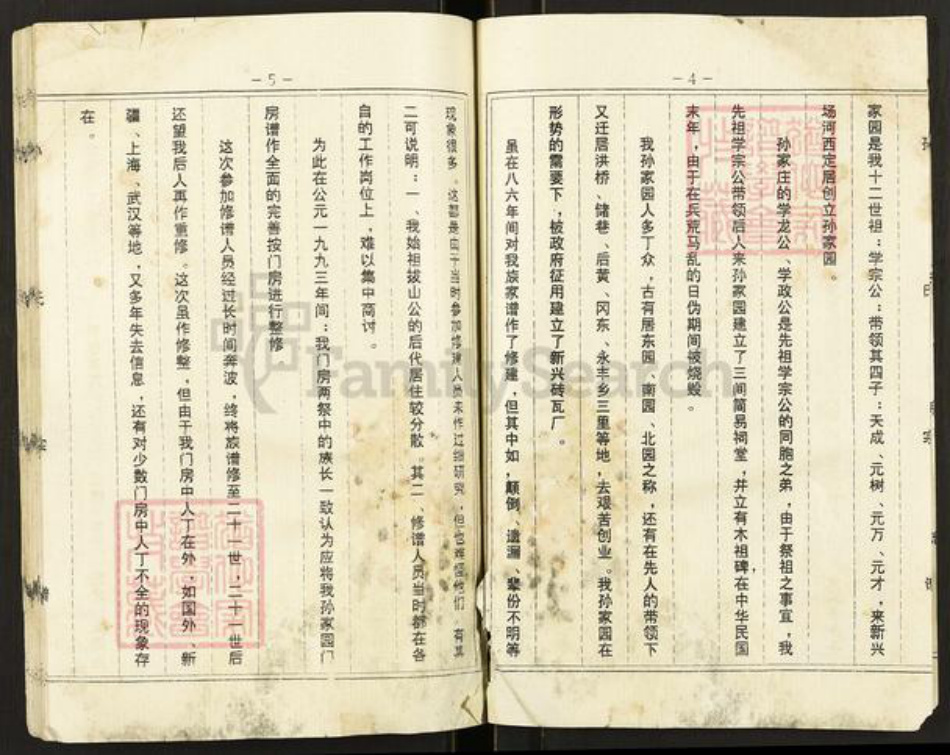 －4－
家园是我十二世祖：学宗公：带领其四子：天成、元树、元万、元才，来新兴
场河西定居创立孙家园。
孙家庄的学龙公、学政公是先祖学宗公的同胞之弟，由于祭祖之事宜，我
先祖学宗公带领后人来孙家园建立了三间简易祠堂，并立有木祖碑，在中华民国
末年，由于在兵荒马乱的日伪期间被烧毁。
我孙家园人多丁众，古有居东园、南园、北园之称，还有在先人的带领下
又迁居洪桥、储巷、后黄、冈东、永丰乡三里等地，去艰苦创业。我孙家园在
形势的需要下，被政府征用建立了新兴砖瓦厂。
虽在八六年间对我族家谱作了修建，但其中如，颠倒、遗漏、辈份不明等
－5－
现象很多。这都是由于当时参加修建人员未作过细研究，但也难怪他们，有其
二可说明：一、我始祖拔山公的后代居住较分散。其二、修谱人员当时都在各
自的工作岗位上，难以集中商讨。
为此在公元一九九三年间：我门房两祭中的族长一致认为应将我孙家园门
房谱作全面的完善按门房进行整修
这次参加修谱人员经过长时间奔波，终将族谱修至二十一世，二十一世后
还望我后人再作重修。这次虽作修整，但由于我门房中人丁在外，如国外、新
疆、上海、武汉等地，又多年失去信息，还有对少数门房中人丁不全的现象存
在。
FamilySearch